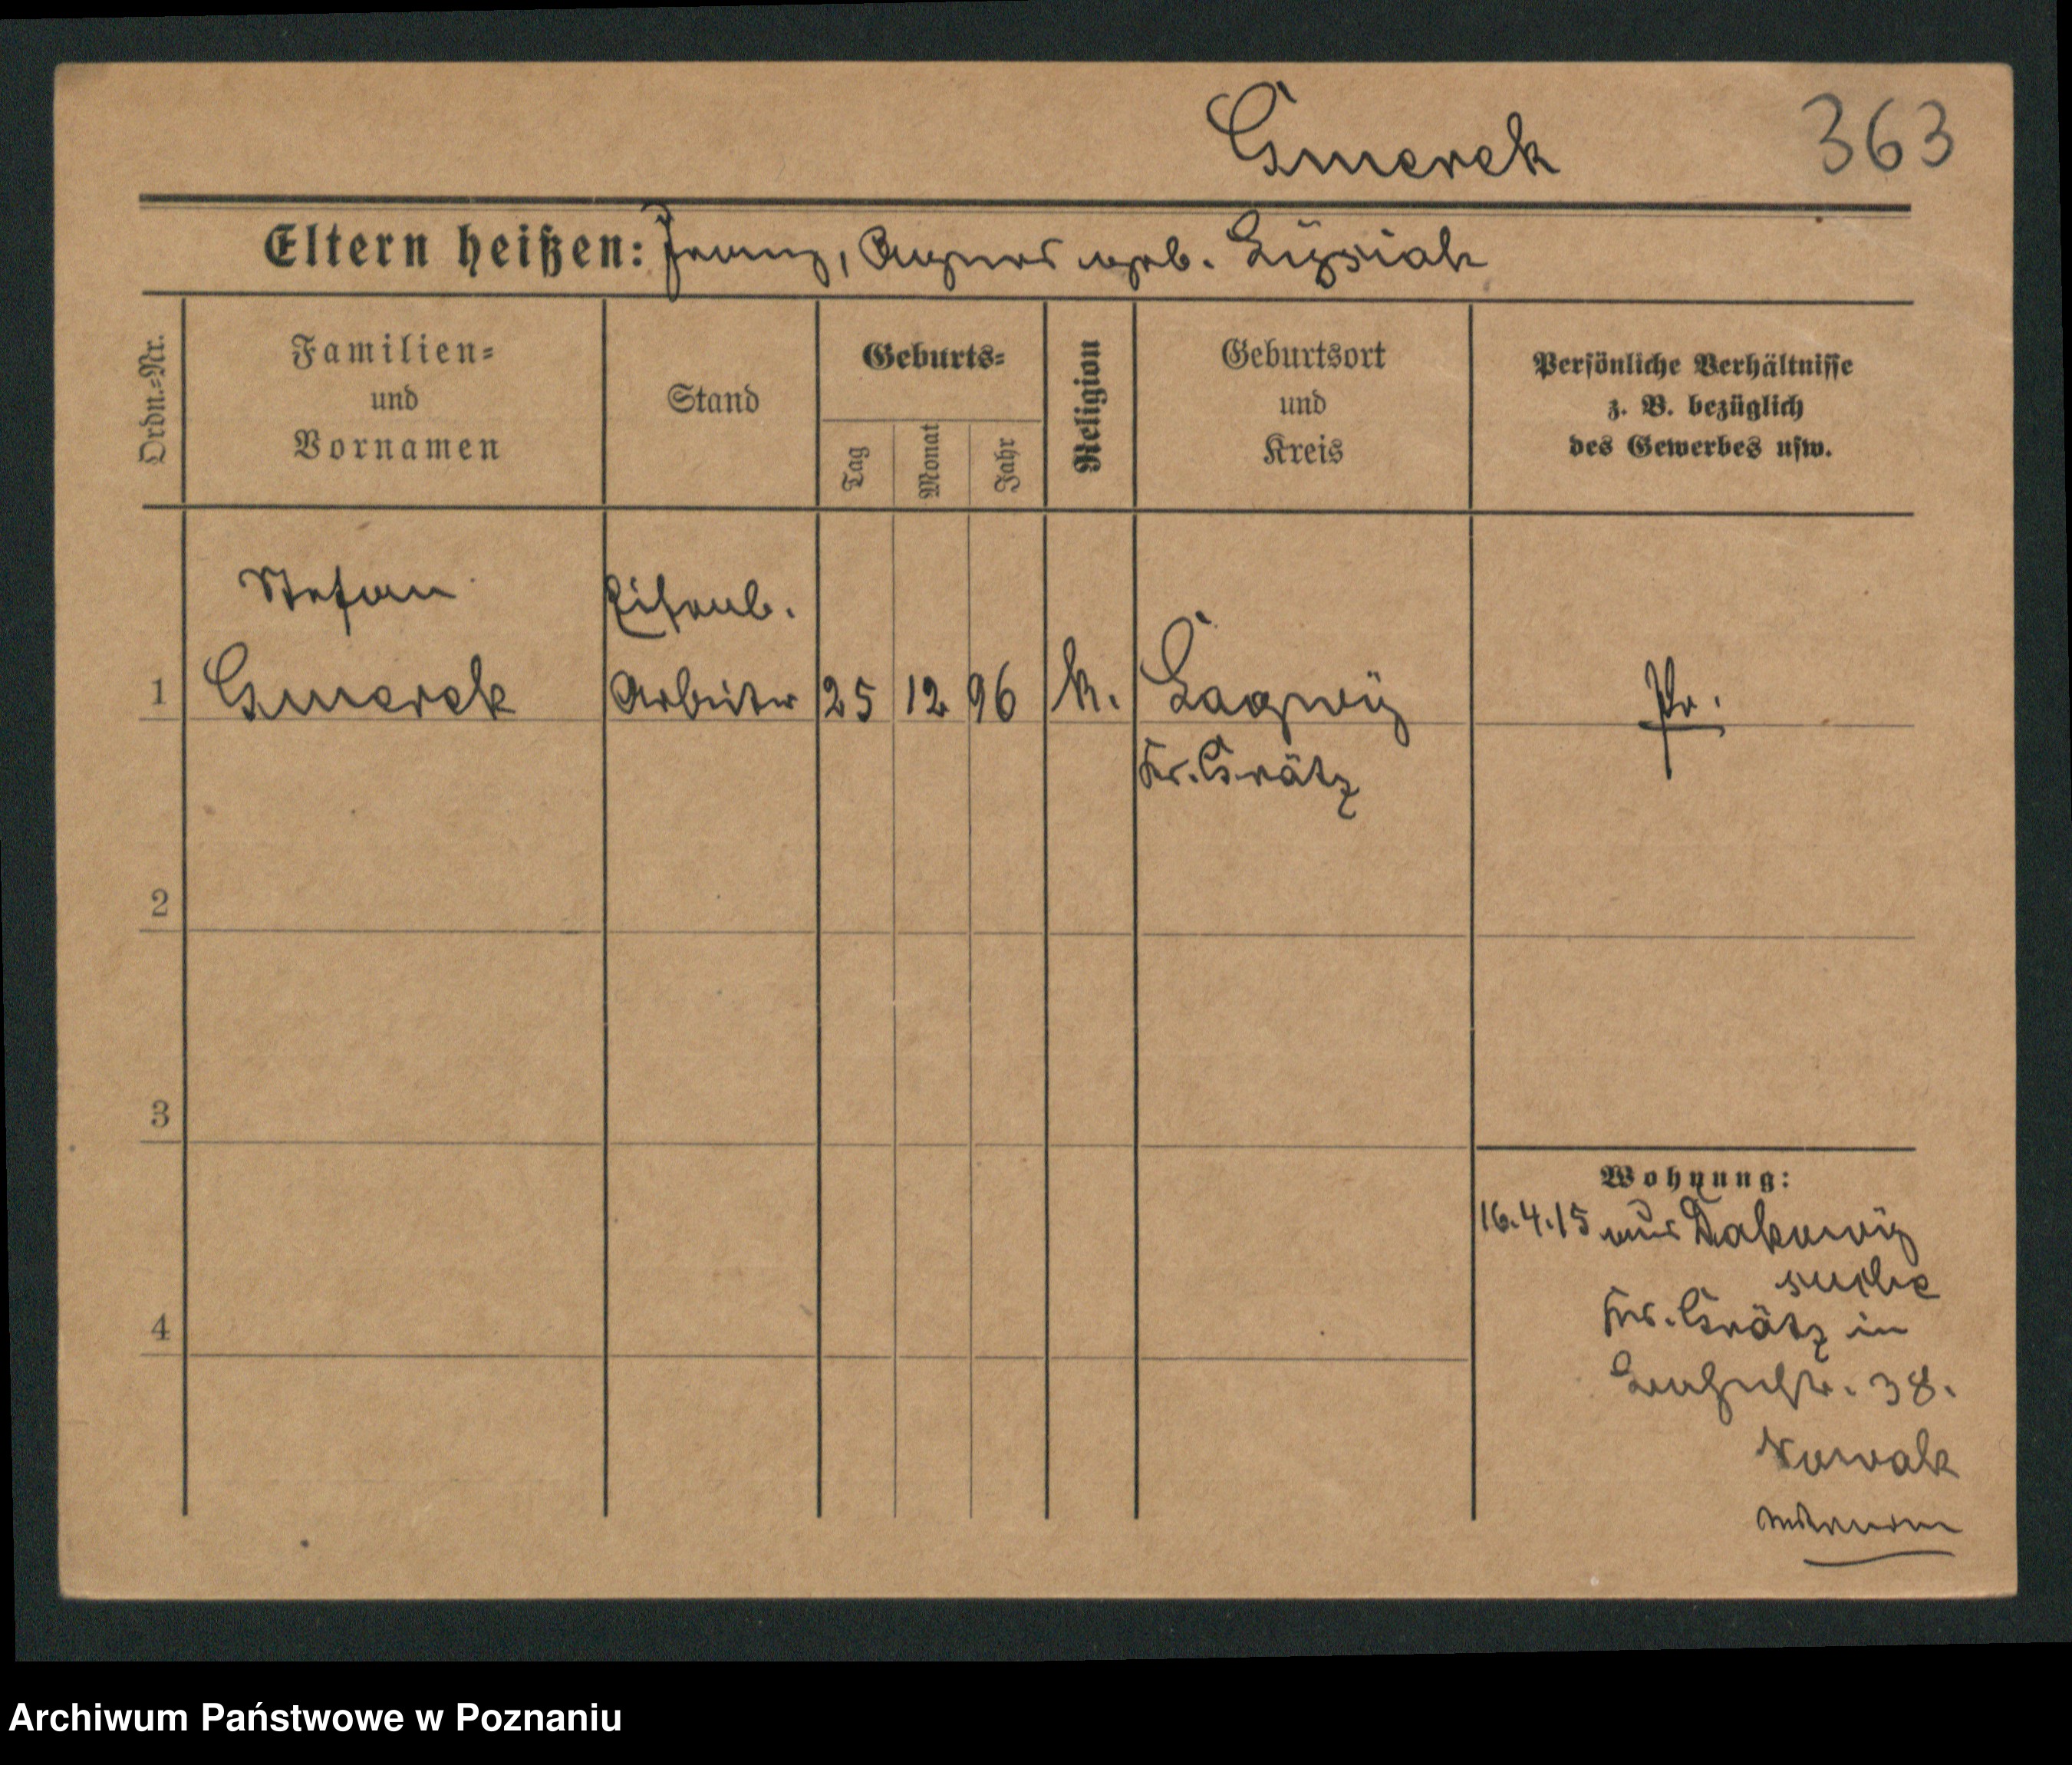 Gmerek 363
Eltern heißen: Franz, Agnes geb. Ligsiak
Ordn.-Nr.
Familien-
und
Vornamen
Stand
Geburts-
Tag
Monat
Jahr
Religion
Geburtsort
und
Kreis
Persönliche Verhältnisse
z. B. bezüglich
des Gewerbes usw.
Stefan Eisenb.
1 Gmerek Arbeiter 25 12 96 k. Lagwy Pr.
Kr. Grätz
2
3
4
Wohnung:
16.4.15 aus Dakowy
suche
Kr. Grätz in
38.
Nowak
Archiwum Państwowe w Poznaniu